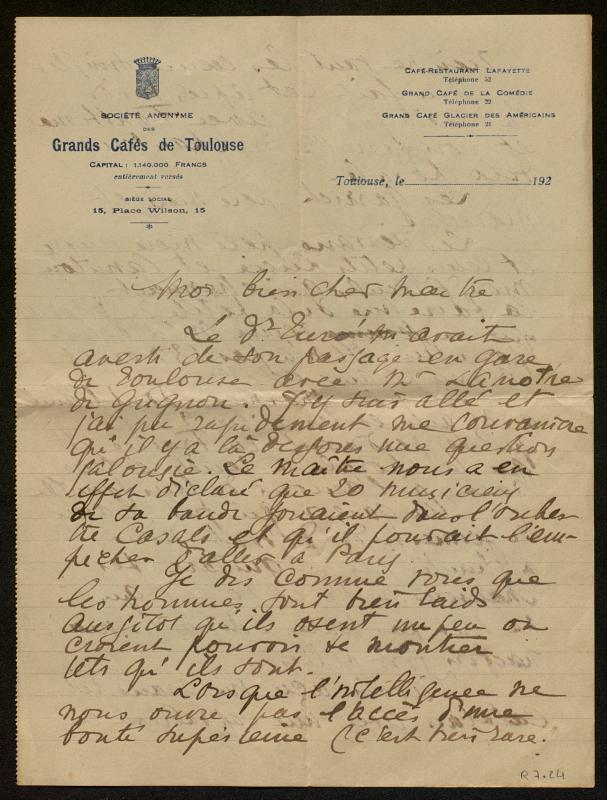 SOCIÉTÉ ANONYME
DES
Grands Cafés de Toulouse
CAPITAL : 1.140.000 FRANCS
entièrement versés
SIÈGE SOCIAL
15, Place Wilson, 15
CAFÉ-RESTAURANT LAFAYETTE
Téléphone 52
GRAND CAFÉ DE LA COMÉDIE
Téléphone 22
GRAND CAFÉ GLACIER DES AMÉRICAINS
Téléphone 21
Toulouse, le 192
Mon bien cher Maître
Le Dr m'avait
averti de son passage en gare
de Toulouse avec Mr Lanotre
de Grignon. J'y suis allé et
j'ai pu rapidement me convaincre
qu'il y a là dessous une question
jalousie. Le maître nous a en
effet déclaré que 20 musiciens
de sa bande jouaient dans l'orches-
tre Casals et qu'il pourrait l'em-
pêcher d'aller à Paris.
Je dis comme vous que
les hommes sont bien laids
aussitôt qu'ils osent un peu ou
croient pouvoir se montrer
tels qu'ils sont.
Lorsque l'intelligence ne
nous ouvre pas l'accès d'une
bonté supérieure (c'est très rare.
R 7.24